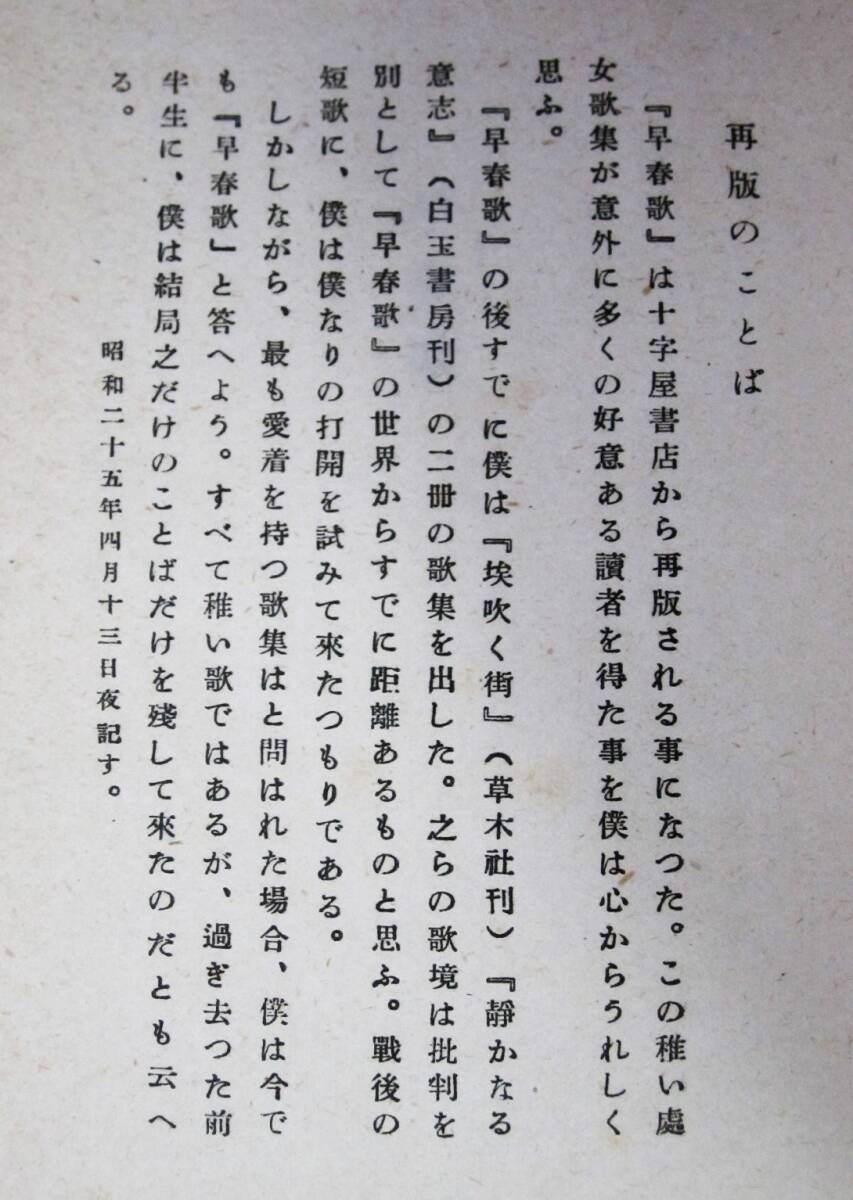 再版のことば
『早春歌』は十字屋書店から再版される事になつた。この稚い處
女歌集が意外に多くの好意ある讀者を得た事を僕は心からうれしく
思ふ。
『早春歌』の後すでに僕は『埃吹く街』（草木社刊）『靜かなる
意志』（白玉書房刊）の二冊の歌集を出した。之らの歌境は批判を
別として『早春歌』の世界からすでに距離あるものと思ふ。戰後の
短歌に、僕は僕なりの打開を試みて來たつもりである。
しかしながら、最も愛着を持つ歌集はと問はれた場合、僕は今で
も『早春歌」と答へよう。すべて稚い歌ではあるが、過ぎ去つた前
半生に、僕は結局之だけのことばだけを殘して來たのだとも云へ
る。
昭和二十五年四月十三日夜記す。